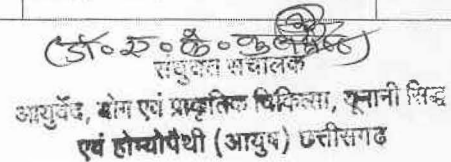 (डॉ० ए० के० कुलश्रेष्ठ)
संयुक्त संचालक
आयुर्वेद, योग एवं प्राकृतिक चिकित्सा, यूनानी सिद्ध
एवं होम्योपैथी (आयुष) छत्तीसगढ